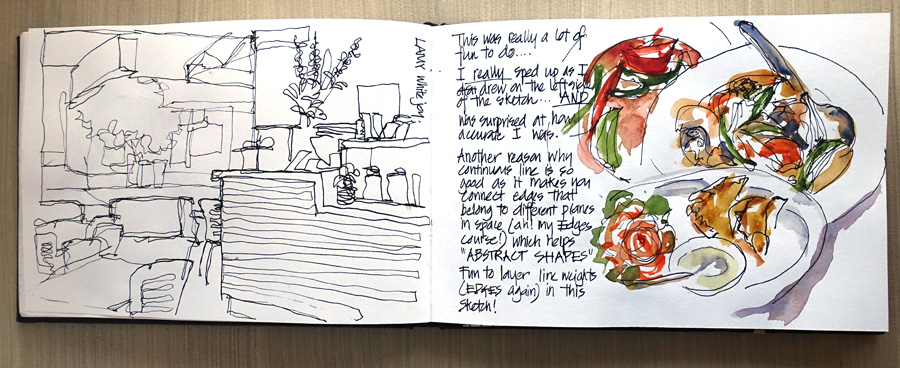 LAMY white joy
This was really a lot of
fun to do....
I really sped up as I
drew on the left side
of the sketch... AND
was surprised at how
accurate I was.
Another reason why
continuous line is so
good as it makes you
connect edges that
belong to different planes
in space (ah! my Edges
course!) which helps
"ABSTRACT SHAPES"
Fun to layer line weights
(EDGES again) in this
sketch!